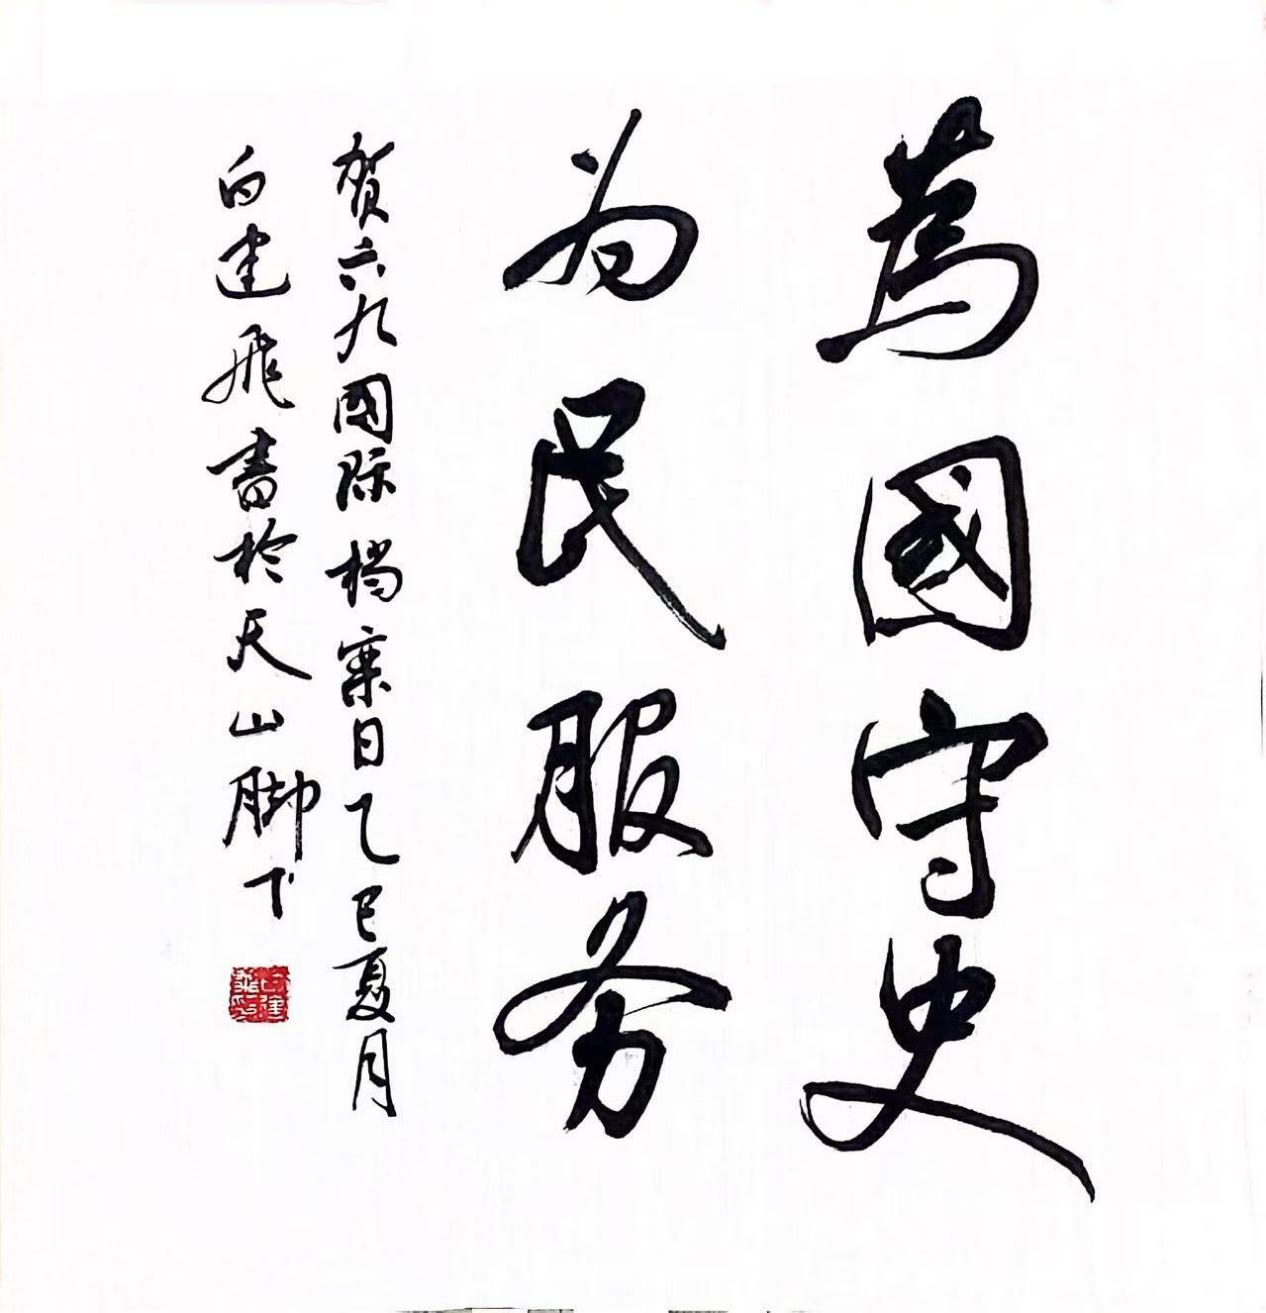 為國守史
为民服务
贺六九國际档案日乙巳夏月
白建飛書於天山脚下